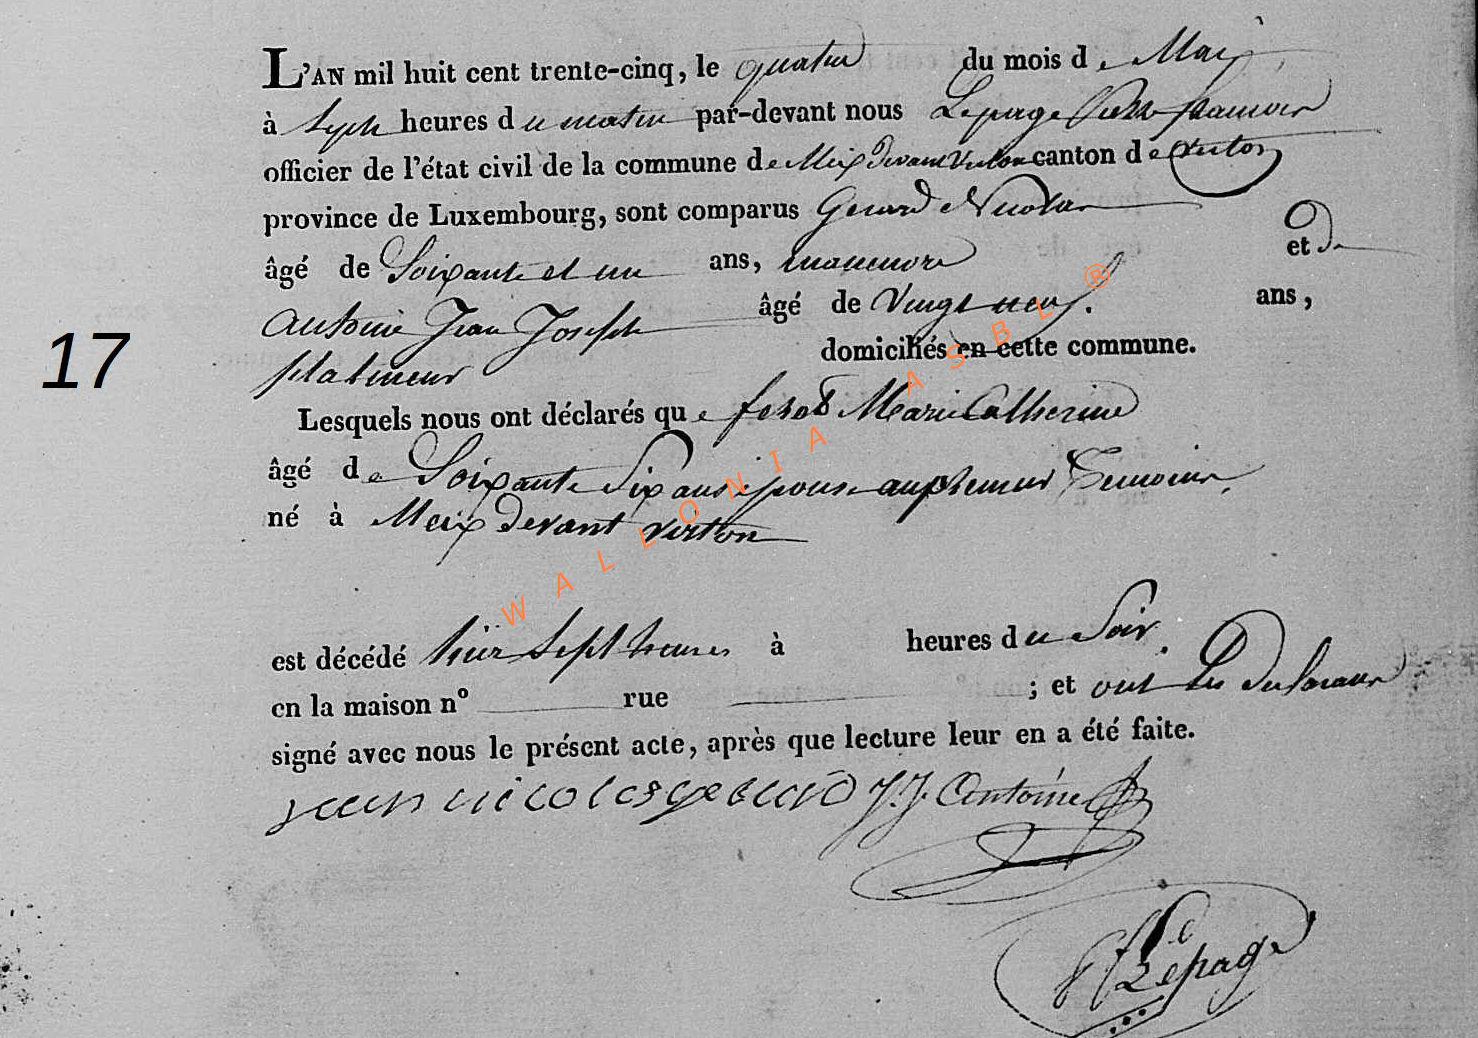 L'AN mil huit cent trente-cinq, le quatre du mois de Mai
à Sept heures du matin par-devant nous Lepage Pierre françois
officier de l'état civil de la commune de Meix devant Virton canton de virton
province de Luxembourg, sont comparus Gerard Nicolas
âgé de Soixante et un ans, manoeuvre et de
antoine Jean Joseph âgé de Vingt neuf. ans,
platineur domiciliés en cette commune.
17
Lesquels nous ont déclarés que Marie Catherine
âgé de Soixante Six ans épouse au premier Temoins,
né à Meix devant virton
est décédé hier Sept heures à heures du Soir.
en la maison nº rue ; et ont les
signé avec nous le présent acte, après que lecture leur en a été faite.
jean nicolas gerard J. J. Antoine
Lepage
WALLONIA ASBL ®